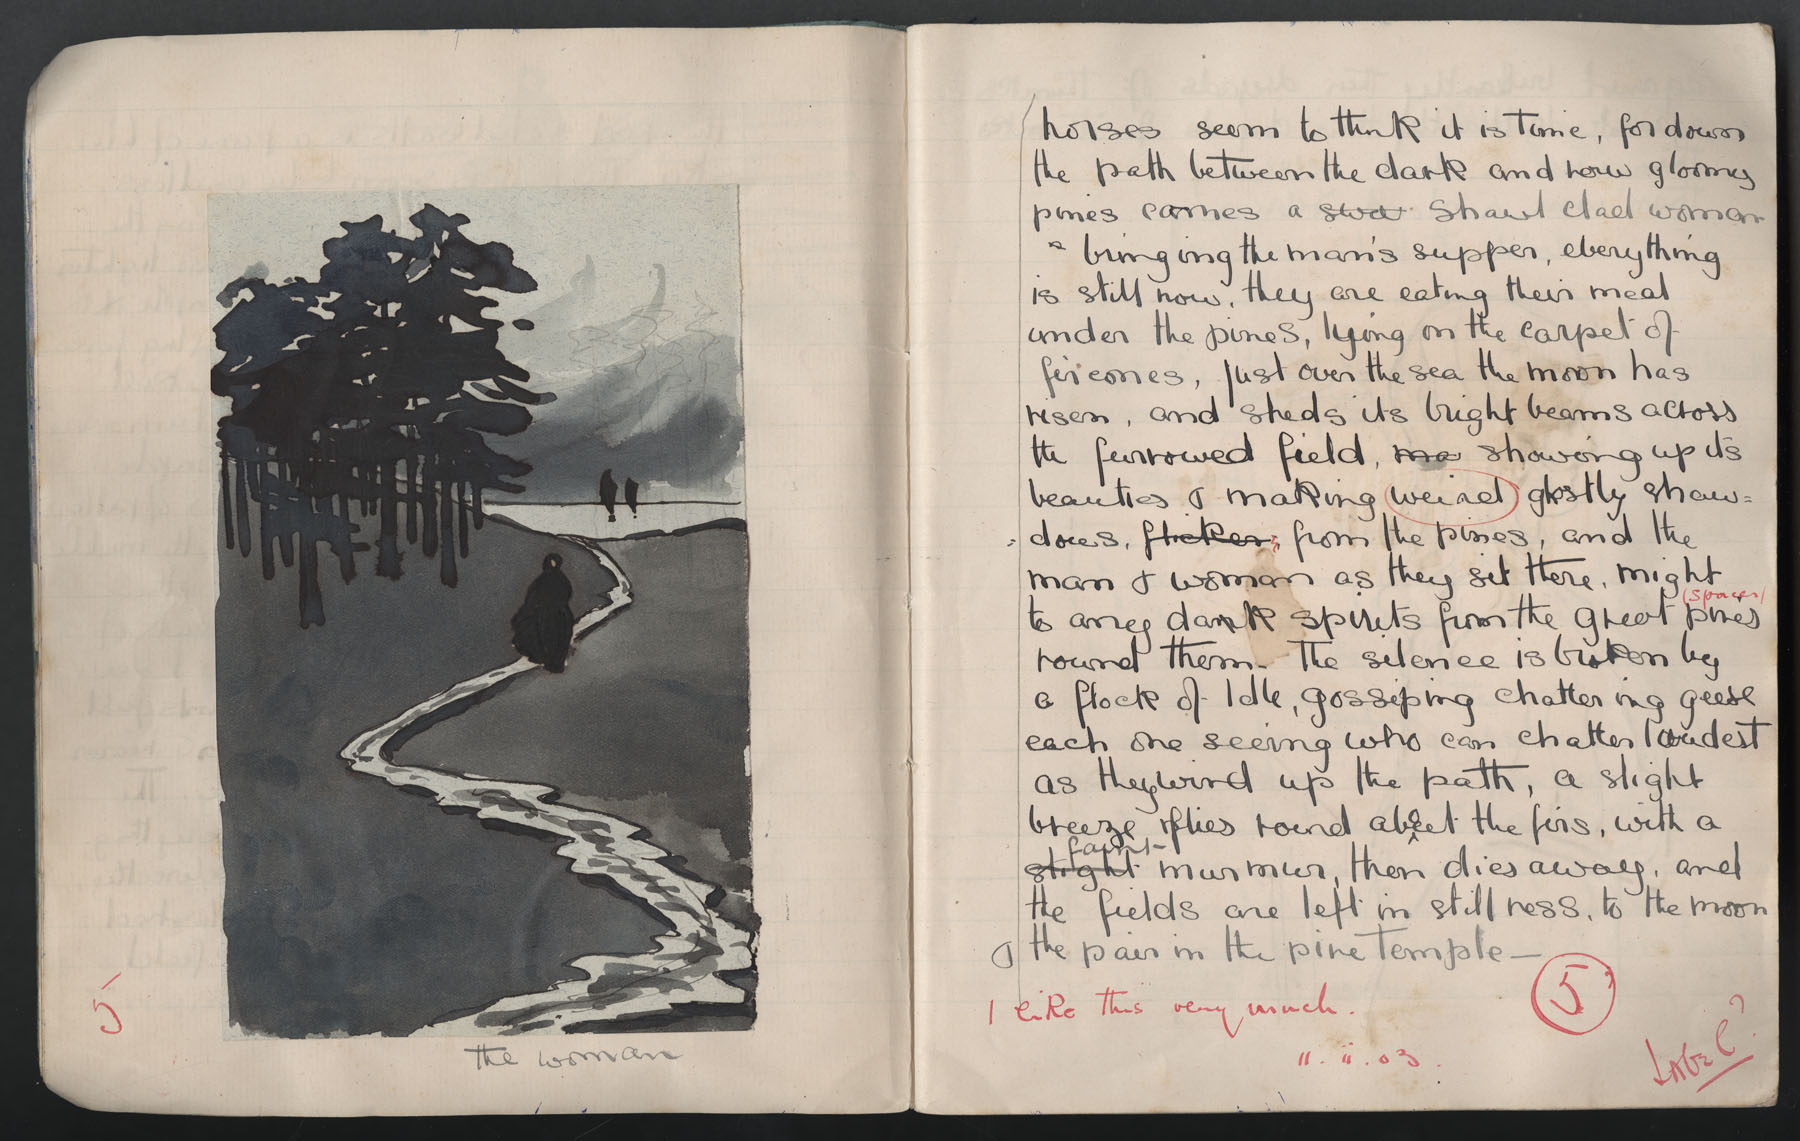 5
the woman
horses seem to think it is time, for down
the path between the dark and now gloomy
pines comes a shawl clad woman
bringing the man's supper, everything
is still now, they are eating their meal
under the pines, lying on the carpet of
fir cones, just over the sea the moon has
risen, and sheds its bright beams across
the furrowed field, showing up its
beauties & making weird ghstly shaw=
dows, flicker, from the pines, and the
man & woman as they sit there, might
(spaces)
to aney dark spirits from the great pines
round them - The silence is broken by
a flock of Idle, gossiping chattering geese
each one seeing who can chatter loudest
as they wind up the path, a slight
breeze, flies round about the firs, with a
faint
slight murmur, then dies away, and
the fields are left in stillness, to the moon
& the pair in the pine Temple —
I like this very much.
5
11.ii.03.